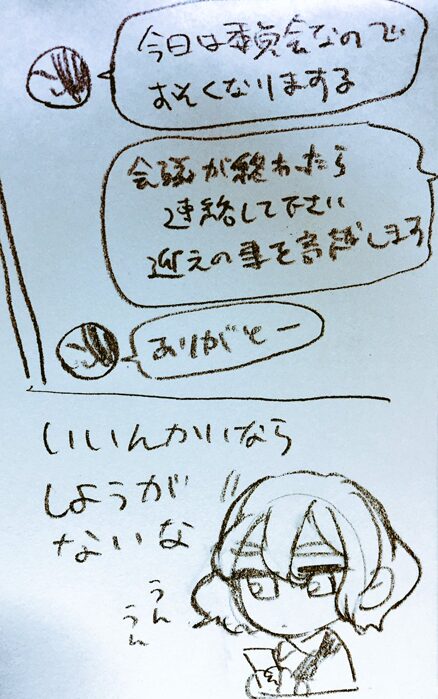 今日は委員会なので
おそくなりまする
会議が終わったら
連絡して下さい
迎えの車を寄越しまする
ありがとー
いいんかいなら
しょうが
ないな
うん
うん